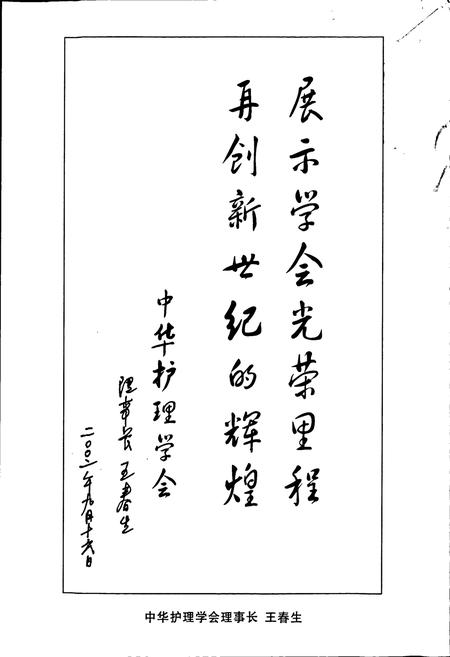 展示学会光荣里程
再创新世纪的辉煌
中华护理学会
理事长 王春生
二〇〇二年九月十六日
中华护理学会理事长 王春生